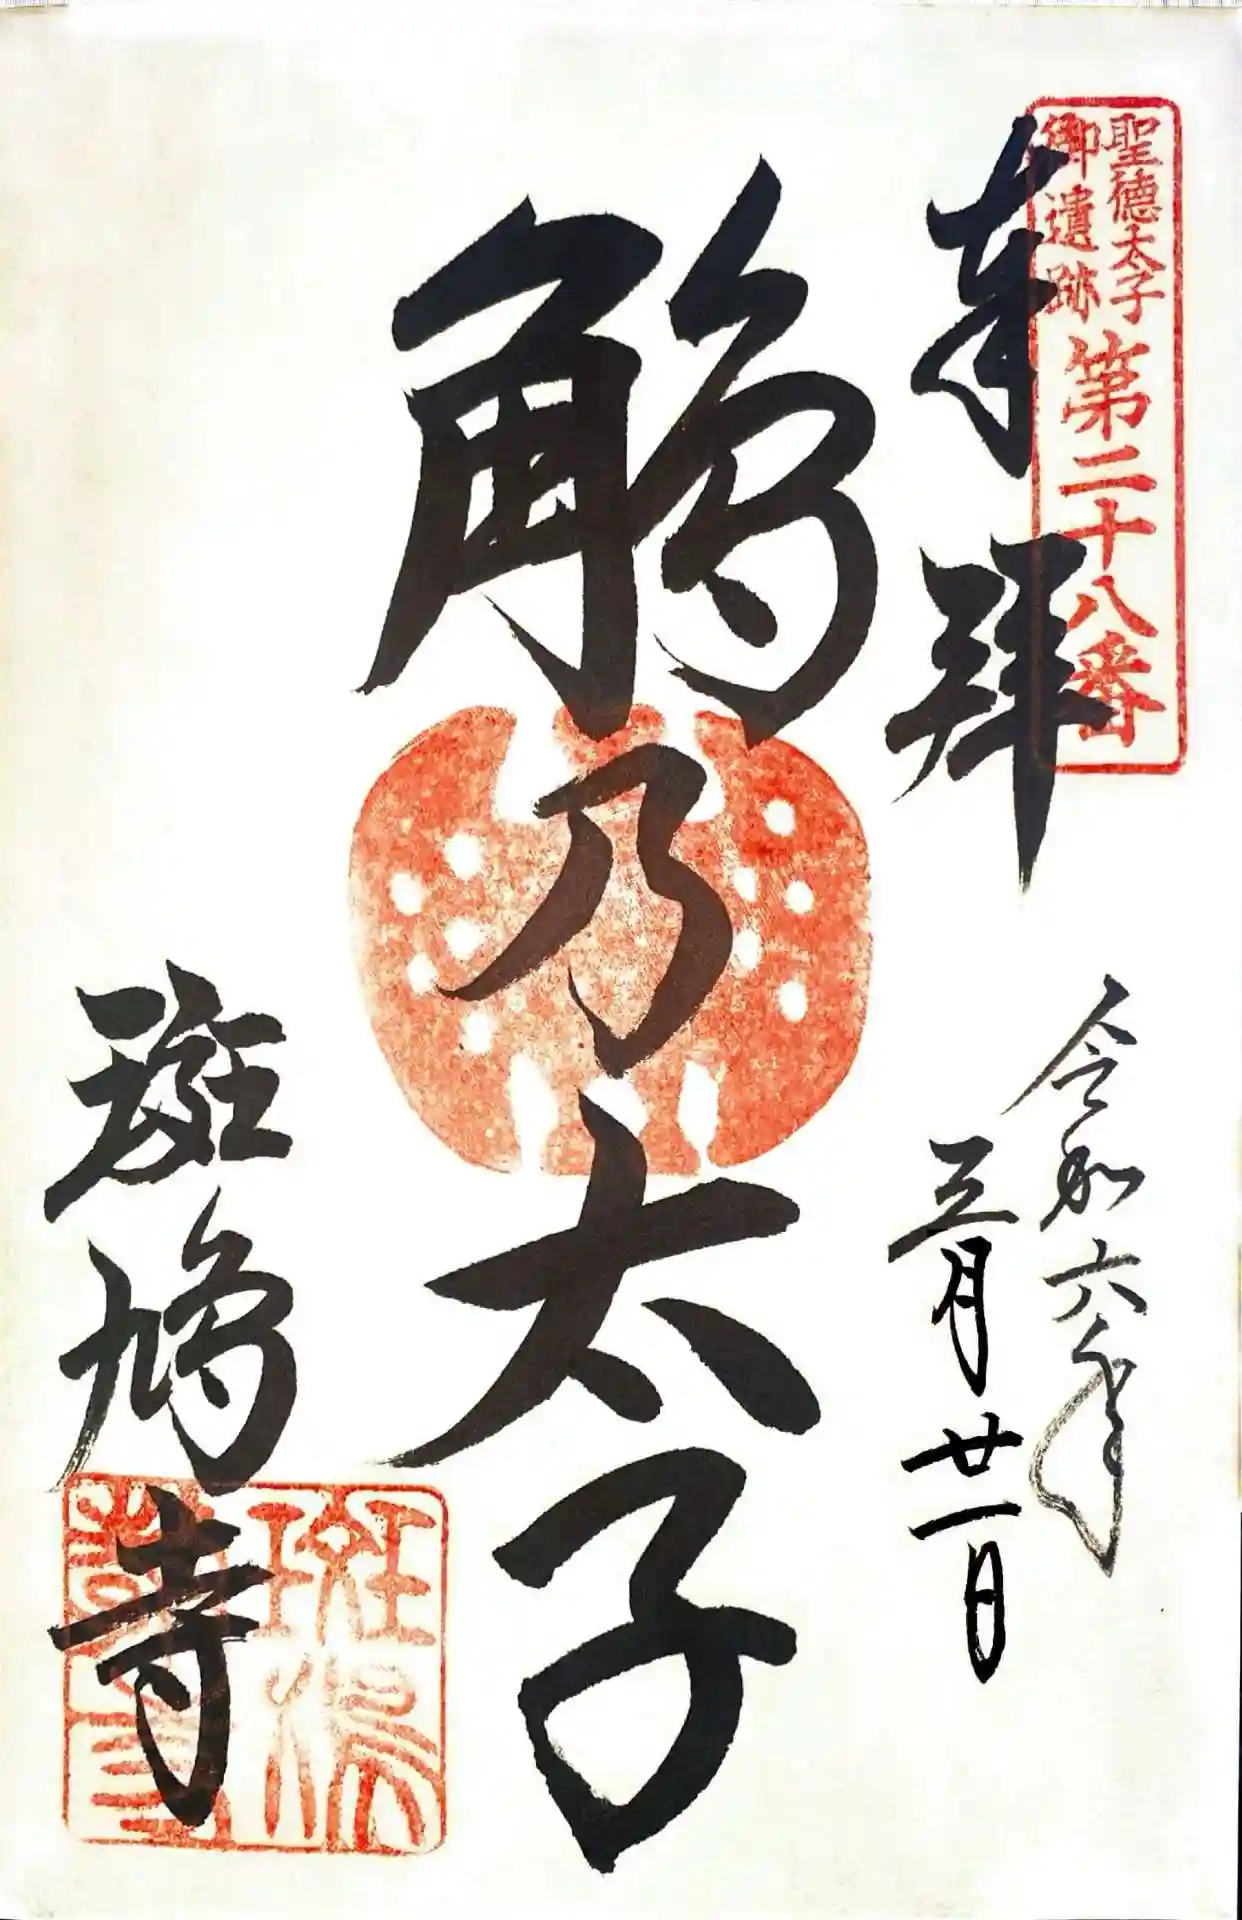 聖徳太子
御遺跡
第二十八番
奉拝
令和六年
三月廿一日
鵤乃太子
斑鳩寺
斑鳩